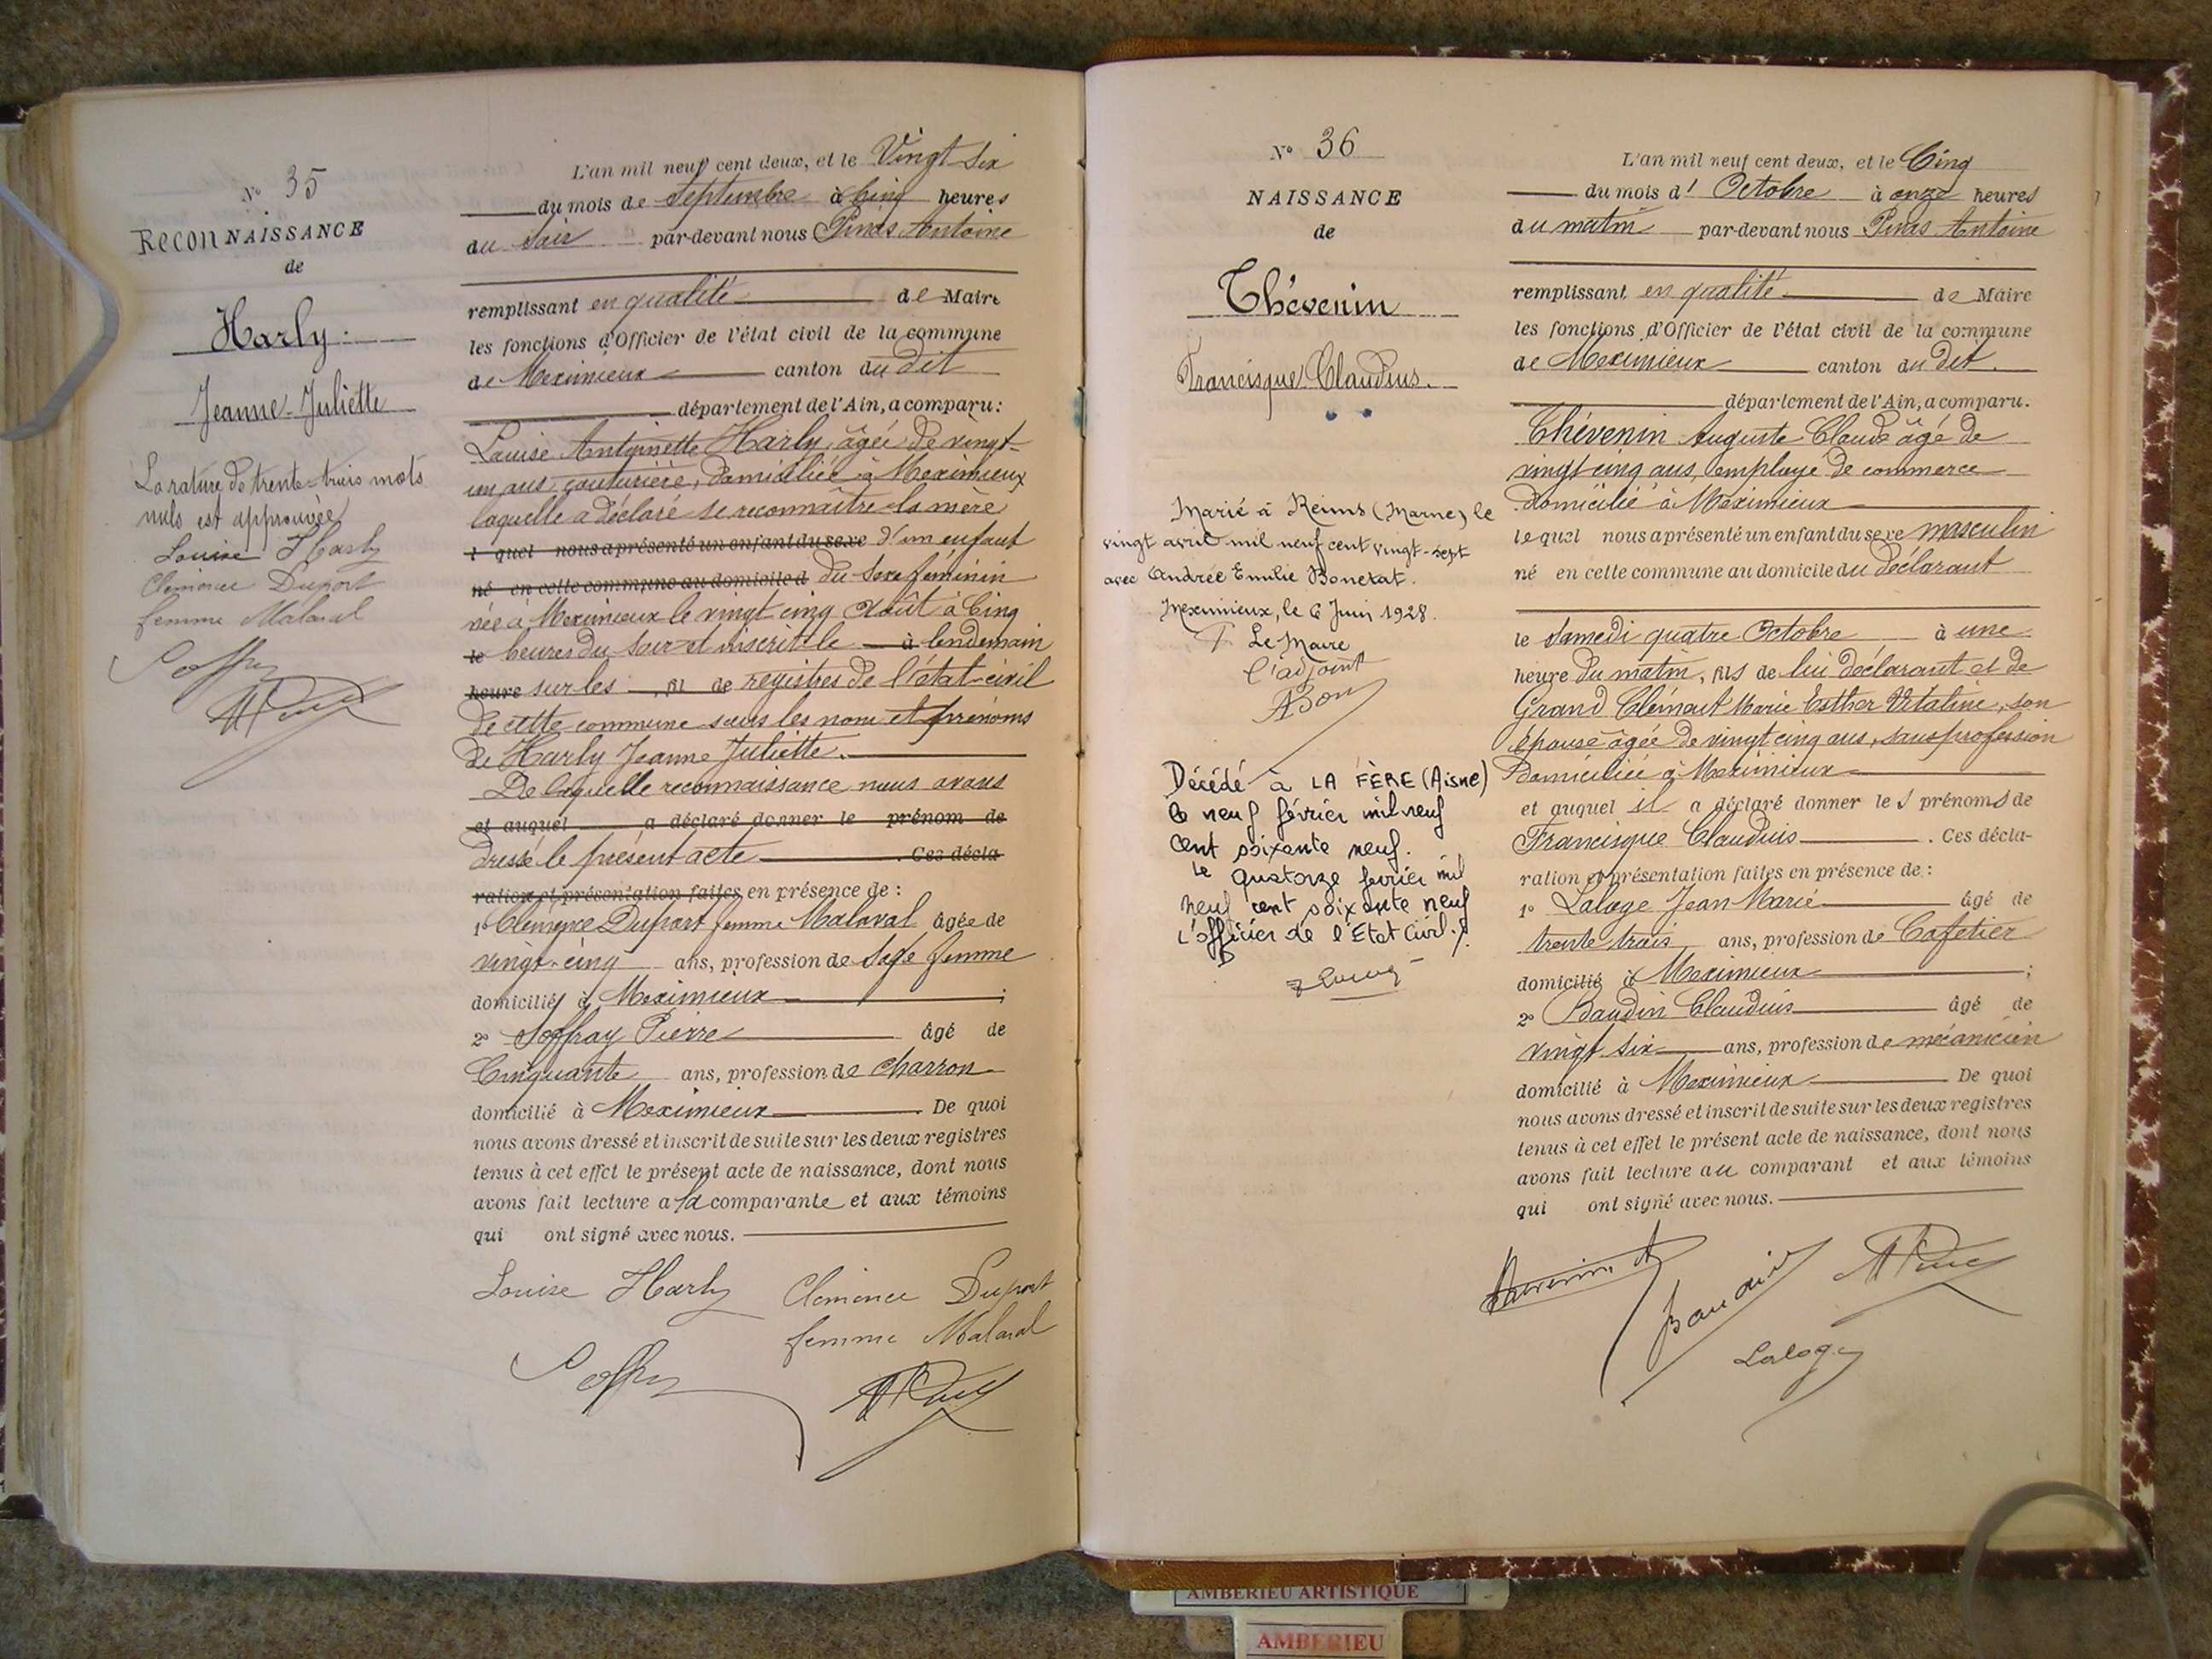 Nº 35
RECONNAISSANCE
de
Harly
Jeanne-Juliette
La rature de trente-trois mots
nuls est approuvée
Louise Harly
Clemence Duport
femme Malaval
L'an mil neuf cent deux, et le Vingt six
du mois de Septembre à Cinq heures
du soir par-devant nous Antoine
remplissant en qualité de Maire
les fonctions d'Officier de l'état civil de la commune
de Meximieux canton du dit
département de l'Ain, a comparu:
Louise Antoinette Harly, âgée de vingt-
un ans, couturière, domiciliée à Meximieux
laquelle a déclaré se reconnaître la mère
l quel nous a présenté un enfant du sexe d'un enfant
né en cette commune au domicile d du sexe féminin
née à Meximieux le vingt cinq Août à Cinq
le heures du soir et inscrit le à lendemain
heure sur les , fil de registres de l'état-civil
de cette commune sous les nom et prénoms
de Harly Jeanne Juliette.
De laquelle reconnaissance nous avons
et auquel a déclaré donner le prénom de
dressé le présent acte . Ces décla-
ration et présentation faites en présence de :
1º Clémence Duport femme Malaval âgée de
vingt-cinq ans, profession de sage femme
domicilié à Meximieux ;
2º Joffray Pierre âgé de
Cinquante ans, profession de charron
domicilié à Meximieux . De quoi
nous avons dressé et inscrit de suite sur les deux registres
tenus à cet effet le présent acte de naissance, dont nous
avons fait lecture a la comparante et aux témoins
qui ont signé avec nous.
Louise Harly Clemence Duport
femme Malaval
Nº 36
NAISSANCE
de
Thévenin
Francisque Claudius.
Marié à Reims (Marne) le
vingt avril mil neuf cent vingt-sept
avec Andrée Emilie Bonetat.
Meximieux, le 6 Juin 1928.
Le Maire
l'adjoint
Décédé à LA FÈRE (Aisne)
le neuf février mil neuf
cent soixante neuf.
Le quatorze fevrier mil
neuf cent soixante neuf
L'officier de l'Etat Civil.
L'an mil neuf cent deux, et le Cinq
du mois d' Octobre à onze heures
du matin par-devant nous Antoine
remplissant en qualité de Maire
les fonctions d'Officier de l'état civil de la commune
de Meximieux canton du dit.
département de l'Ain, a comparu.
Thévenin Auguste Claude âgé de
vingt cinq ans, employé de commerce
domicilié à Meximieux
lequel nous a présenté un enfant du sexe masculin
né en cette commune au domicile du déclarant
le Samedi quatre Octobre à une
heure du matin, fils de lui déclarant et de
Grand Clément Marie Esther Vitaline, son
épouse âgée de vingt cinq ans, sans profession
Domiciliée à Meximieux
et auquel il a déclaré donner les prénoms de
Francisque Claudius . Ces décla-
ration et présentation faites en présence de :
1º Laloge Jean Marie âgé de
trente trois ans, profession de Cafetier
domicilié à Meximieux ;
2º Baudin Claudius âgé de
vingt six ans, profession de mécanicien
domicilié à Meximieux De quoi
nous avons dressé et inscrit de suite sur les deux registres
tenus à cet effet le présent acte de naissance, dont nous
avons fait lecture au comparant et aux témoins
qui ont signé avec nous.
Baudin
Laloge
AMBERIEU ARTISTIQUE
AMBERIEU